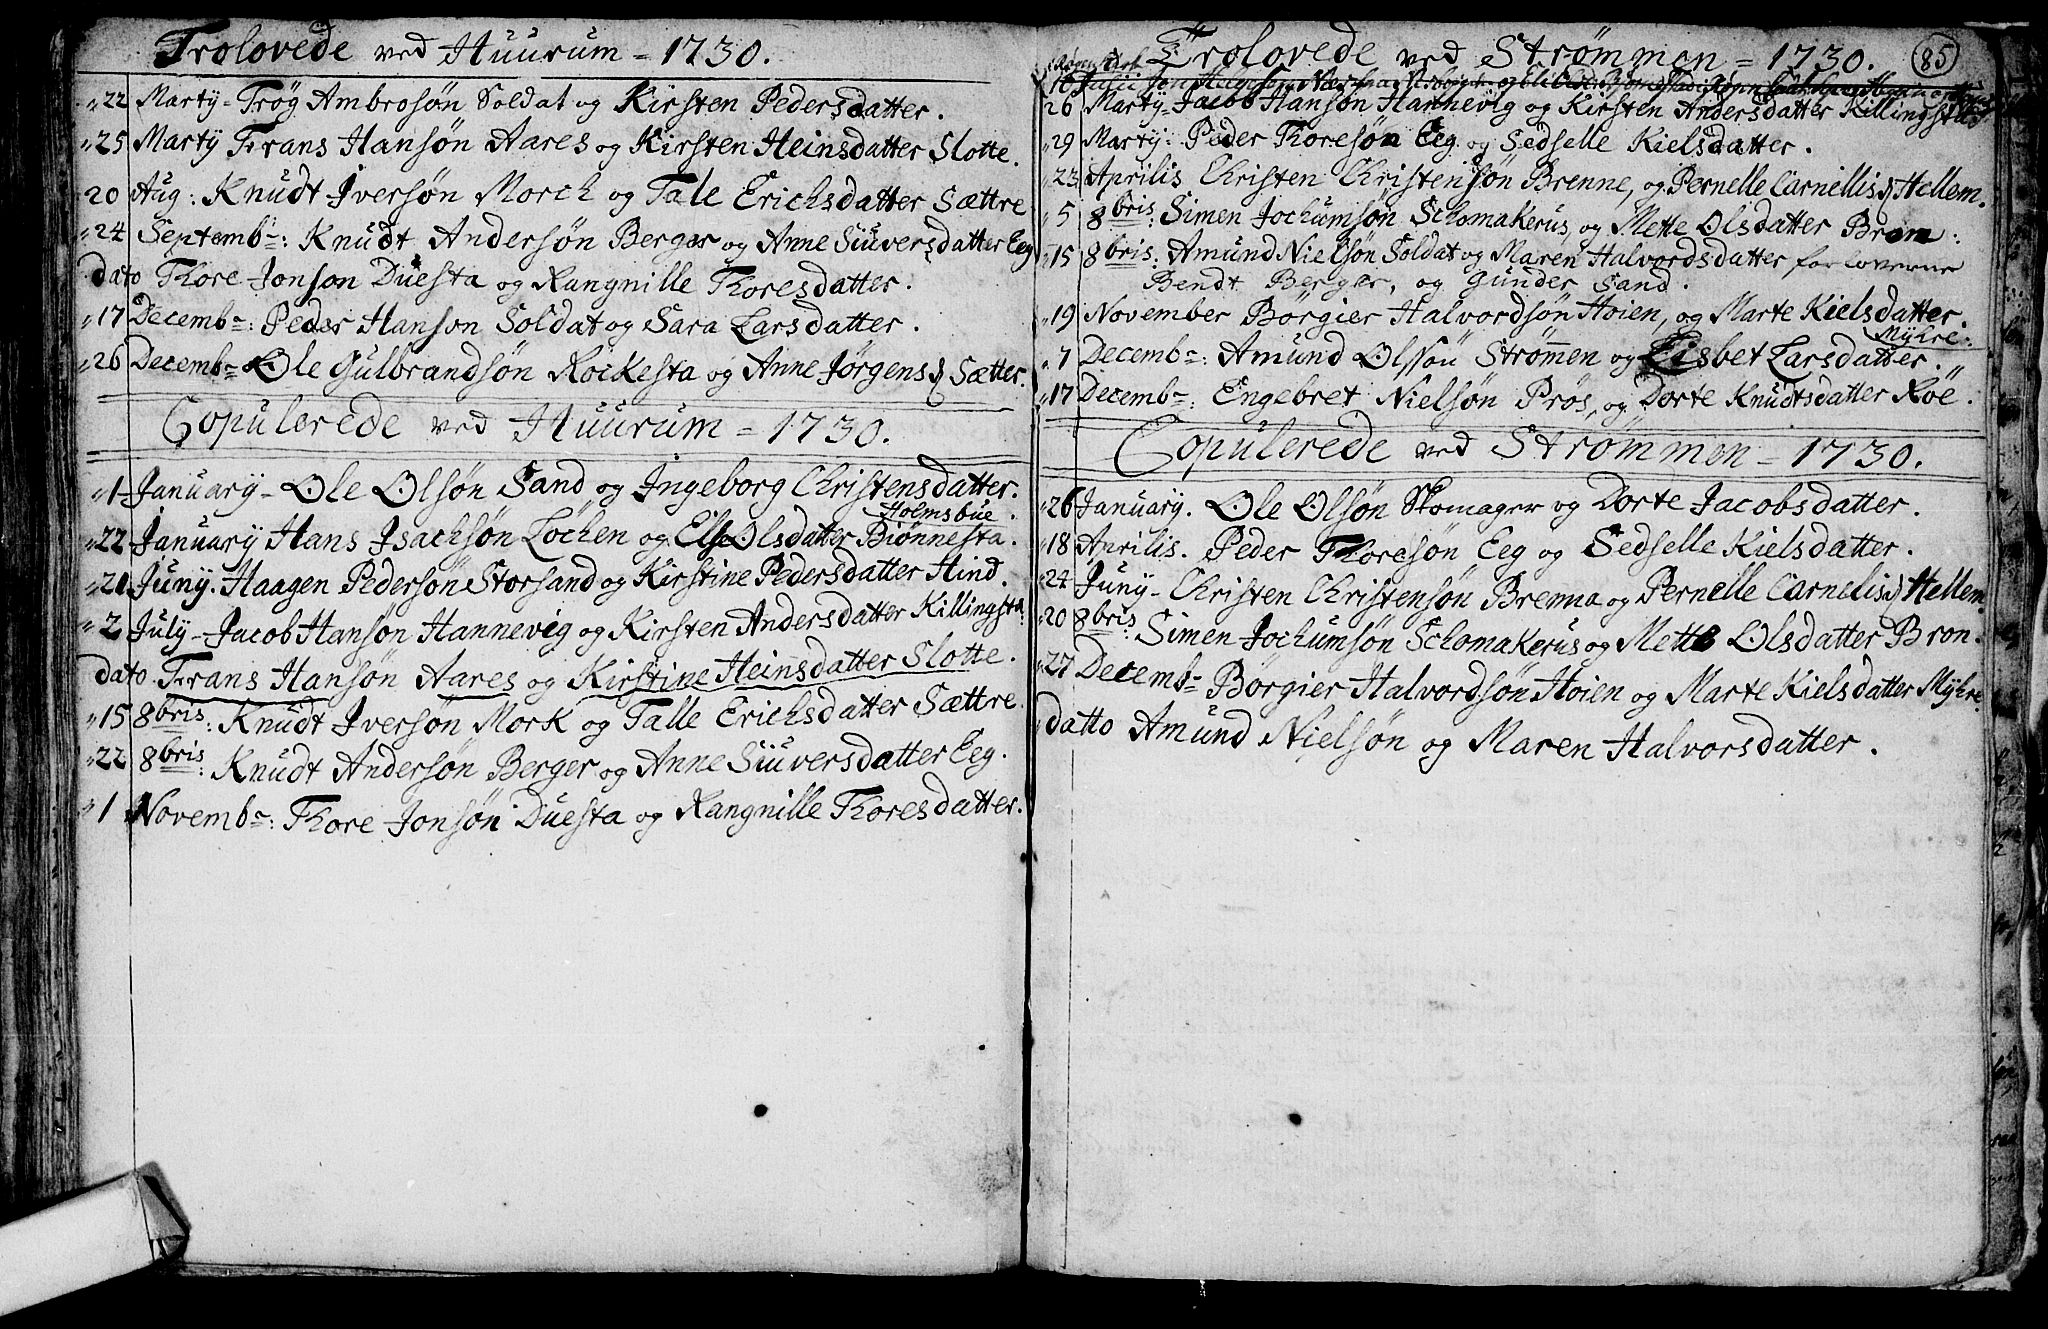 Trolovede ved Huurum = 1730.
22 Marty = Trög Ambrosøn Soldat og Kirsten Pedersdatter.
25 Marty Frans Hansøn Aares og Kirsten Heinsdatter Slotte.
20 Aug: Knudt Iversøn Morch og Tale Erichsdatter Sættre
24 Septembr: Knudt Andersøn Berger og Anne Siuversdatter Eeg
dato Thore Jonson Duesta og Rangnille Thoresdatter.
17 Decembr: Peder Hanson Soldat og Sara Larsdatter.
26 Decembr Ole Gulbrandsøn Rockesta og Anne Jörgensd Sætter.
Copulerede ved Huurum = 1730.
1 January = Ole Olsøn Sand og Ingeborg Christensdatter.
Holmsbue.
22 January Hans Isachsøn Lochen og Else Olsdatter Biönnesta.
21 Juny. Haagen Pedersøn Storsand og Kirstine Pedersdatter Hind.
2 July = Jacob Hansøn Hannevig og Kirsten Andersdatter Killingsta
dato. Frans Hansøn Aares og Kirstine Heinsdatter Slotte.
15 8bris: Knudt Iversøn Mork og Talle Erichsdatter Sættre
22 8bris: Knudt Andersøn Berger og Anne Siuversdatter Eeg.
1 Novembr: Thore Jonsøn Duesta og Rangnille Thoresdatter.
Trolovede ved Strömmen = 1730.
85
26 Marty = Jacob Hansøn Hannevig og Kirsten Andersdatter Killingstad
29 Marty: Peder Thoresøn Eeg og Sedselle Kielsdatter.
23 Aprilis Christen Christensøn Brenne, og Pernelle Carnellisd Hellem.
5 8bris. Simen Jochumsøn Schomakerus, og Mette Olsdatter Bron:
15 8bris: Amund Nielsøn Soldat og Maren Halvordsdatter forloverne
Bendt Berger, og Gunder Sand.
19 November Börgier Halvordsøn Hoien, og Marte Kielsdatter.
Myhre:
7 Decembr: Amund Olssøn Strømen og Lisbet Larsdatter.
17 Decembr: Engebret Nielsøn Prös, og Dorte Knudtsdatter Röe.
Copulerede ved Strömmen = 1730.
26 January. Ole Olsøn Skomager og Dorte Jacobsdatter.
18 Aprilis. Peder Thoresøn Eeg og Sedselle Kielsdatter.
24 Juny = Christen Christensøn Brenna og Pernelle Carnelisd Hellem
20 8bris: Simen Jochumsøn Schomakerus og Mette Olsdatter Bron.
27 Decembr Börgier Halvordsøn Hoien og Marte Kielsdatter Myhre.
datto Amund Nielsøn og Maren Halvorsdatter.